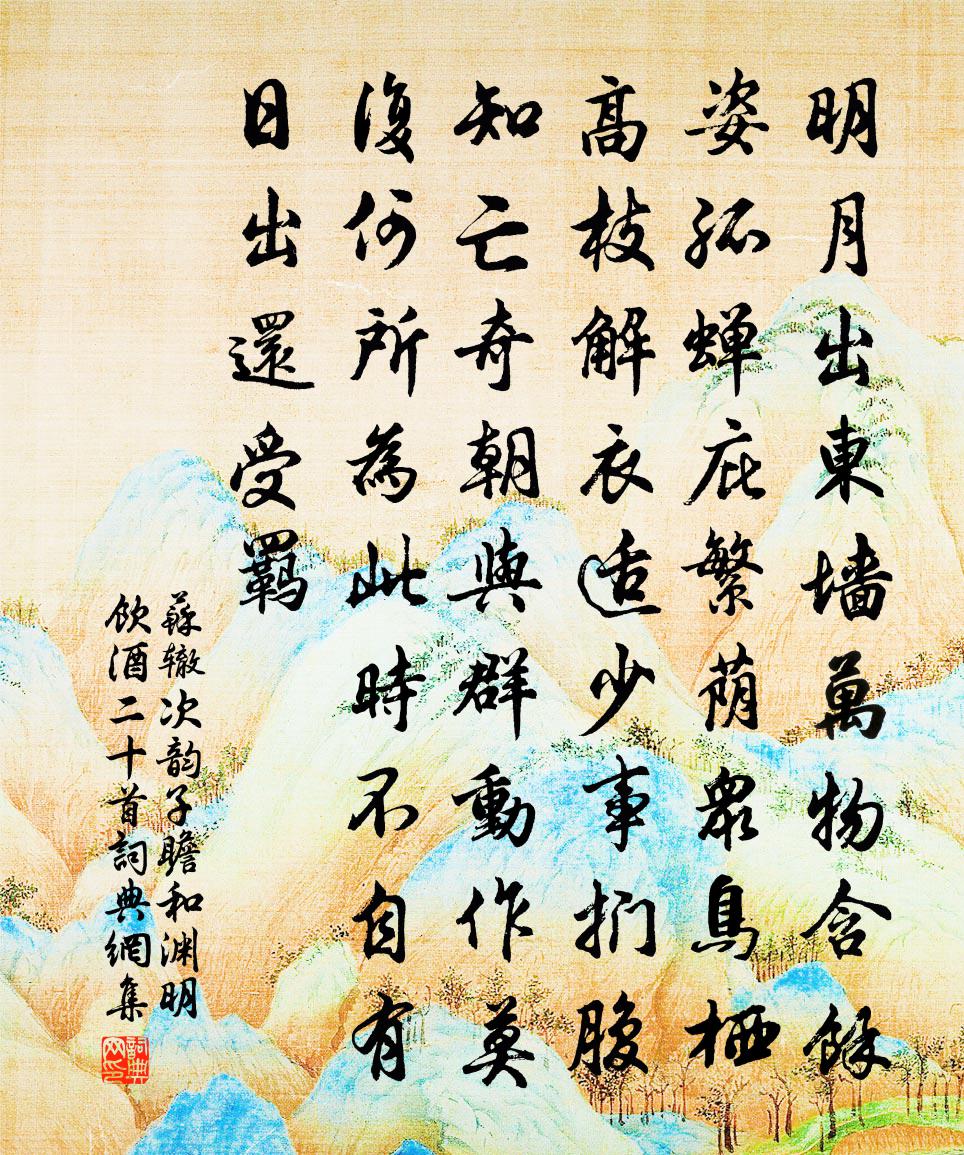 明月出東墻萬物含餘
姿孤蝉庇繁荫眾鳥栖
高枝解衣适少事捫腹
知亡奇朝與群動作莫
復何所為此時不自有
日出還受羈
蘇辙次韵子瞻和渊明
飲酒二十首詞典網集
詞典网印